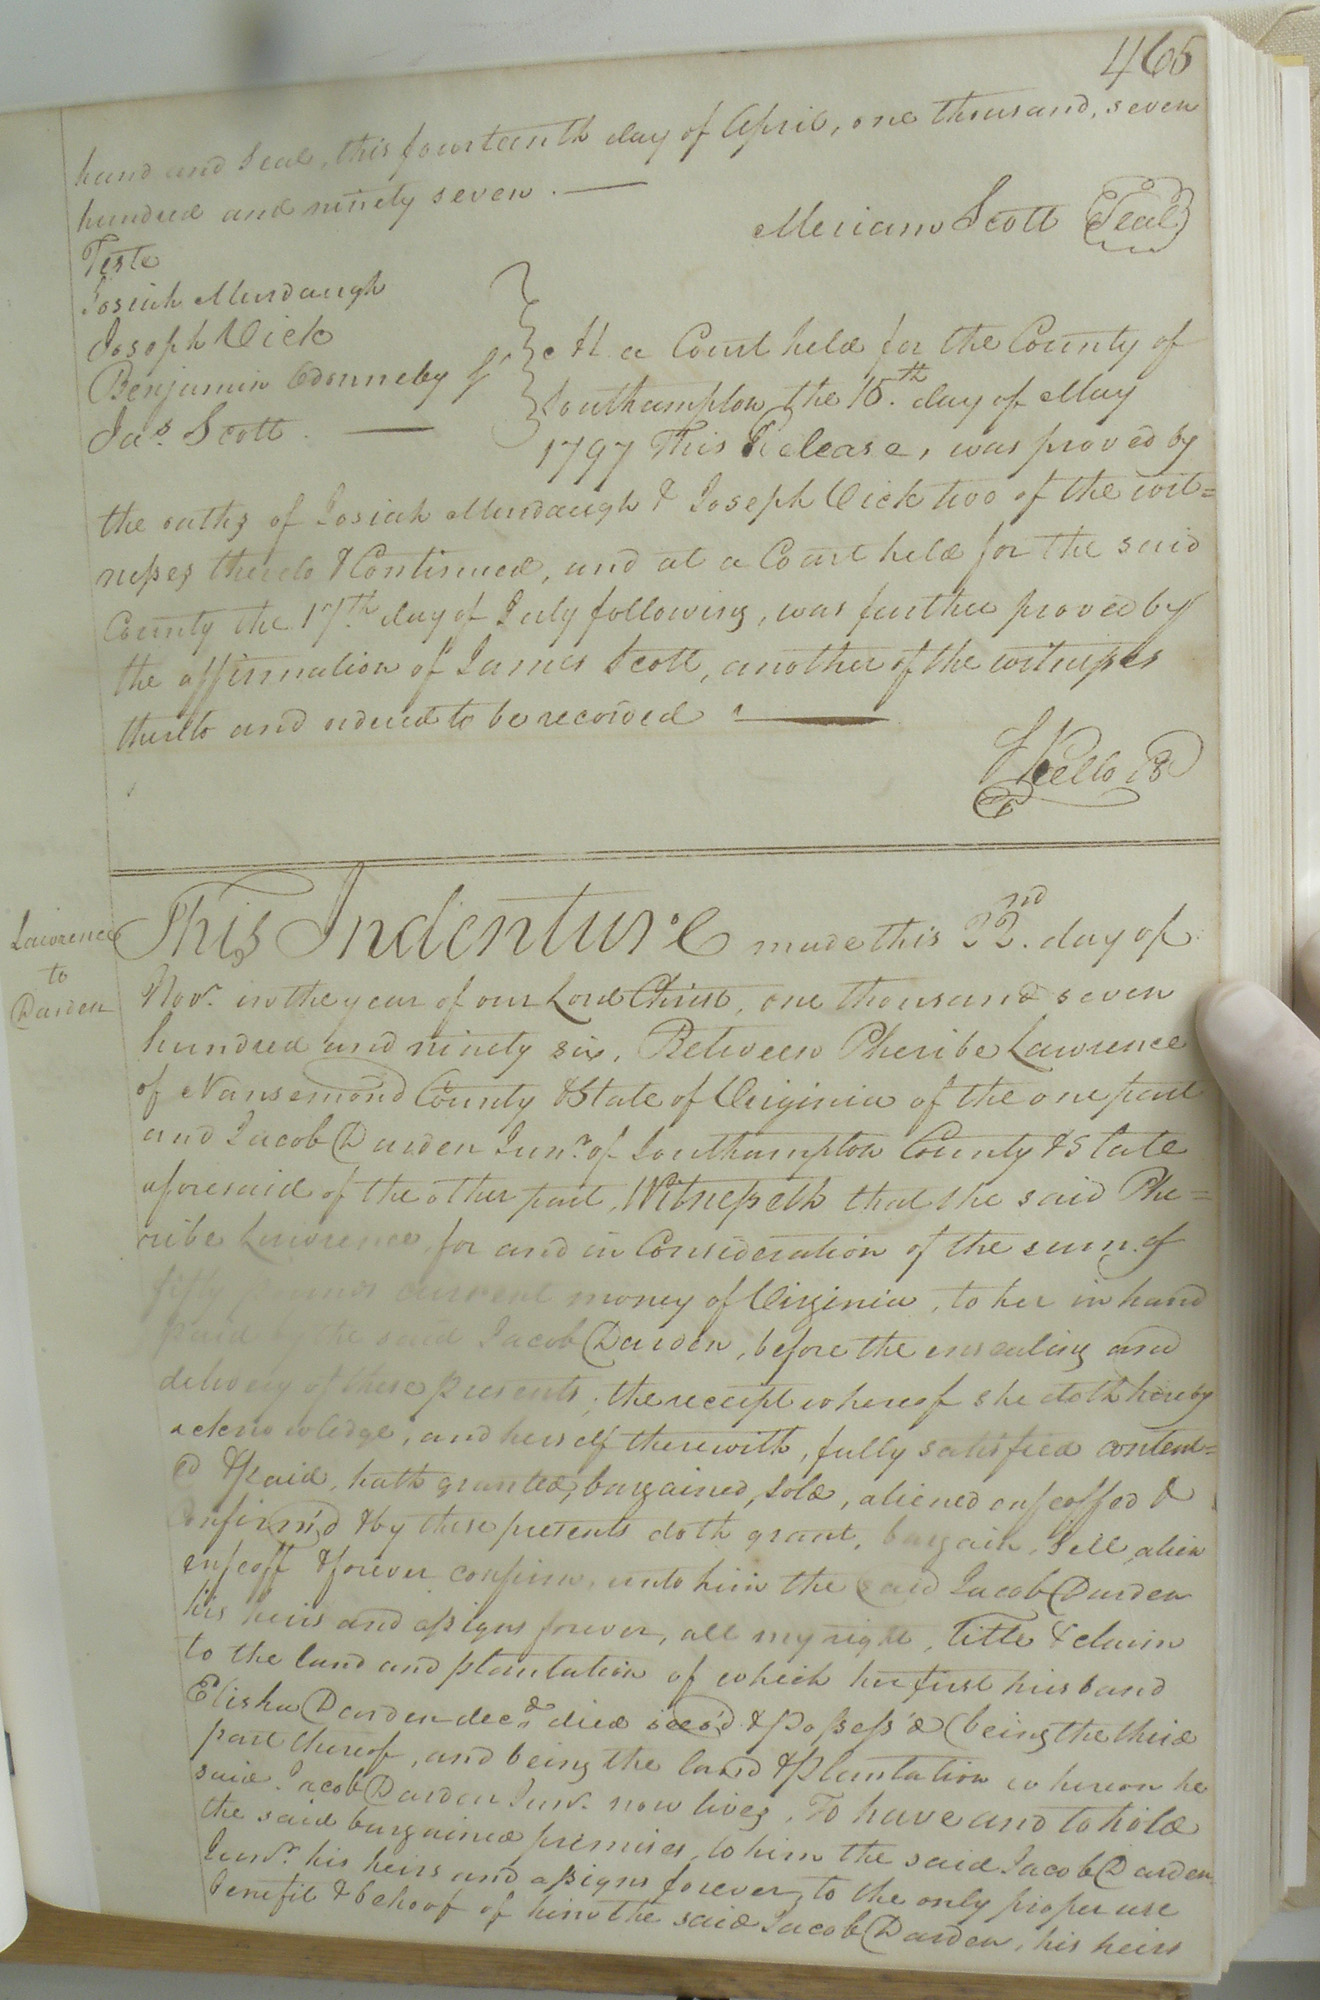 465
hand and Seal, this fourteenth day of April, one thousand, seven
hundred and ninety seven.
Meriam Scott (Seal)
Teste
Josiah Murdaugh
Joseph Vick
Benjamin
Jas. Scott.
At a Court held for the County of
Southampton the 15th. day of May
1797 This Release, was proved by
the oaths of Josiah Murdaugh & Joseph Vick two of the wit=
nesses thereto & Continued, and at a Court held for the said
County the 17th day of July following, was further proved by
the affirmation of James Scott, another of the witnesses
thereto and ordered to be recorded
Kello
Lawrence
to
Darden
This Indenture made this 22nd. day of
Novr. in the year of our Lord Christ, one thousand seven
hundred and ninety six, Between Pheribe Lawrence
of Nansemond County & State of Virginia of the one part
and Jacob Darden Junr. of Southampton County & State
aforesaid of the other part, Witnesseth that she said Phe=
ribe Lawrence, for and in Consideration of the sum of
fifty pounds current money of Virginia, to her in hand
paid by the said Jacob Darden, before the ensealing and
delivery of these presents, the receipt whereof she doth hereby
acknowledge, and herself therewith, fully satisfied content=
ed & paid, hath granted, bargained, sold, aliened enfeoffed &
Confirm'd & by these presents doth grant, bargain, Sell, alien
enfeoff & forever confirm, unto him the said Jacob Darden
his heirs and assigns forever, all my right, Title & claim
to the land and plantation of which her first husband
Elisha Darden decd. died & possess'd (being the third
part thereof, and being the land & Plantation whereon he
said Jacob Darden Junr. now lives, To have and to hold
the said bargained premises, to him the said Jacob Darden
Junr. his heirs and assigns forever, to the only proper use
benefit & behoof of him the said Jacob Darden, his heirs